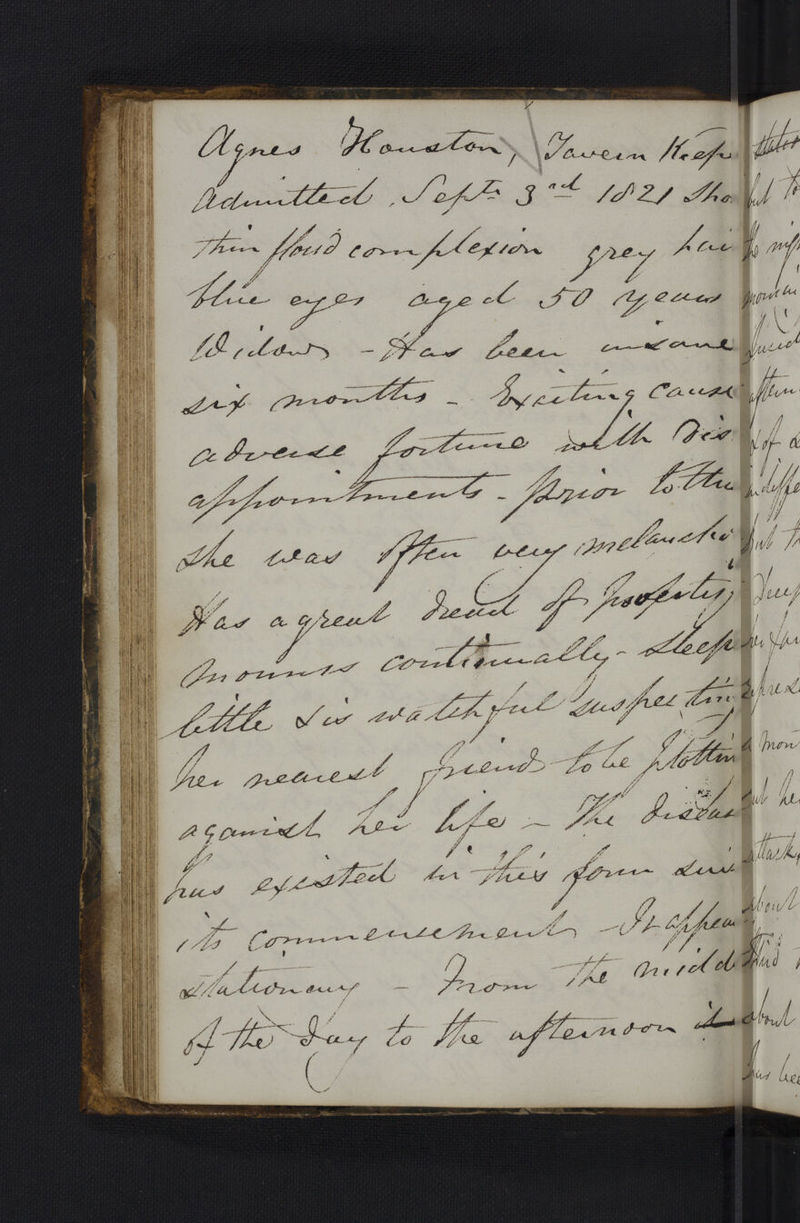 Agnes Houston, Tavern Keep
Admitted Septr 3rd 1821 Sho
thin florid complexion grey hai
blue eyes aged 50 years
Widow - Has been insane
six months - Exciting cause
adverse fortune with Dis
appointments - prior to the
she was often very melancho
Has a great dread of poverty,
mourns continually - Sleep
little & is watchful suspecting
her nearest friend to be plottin
against her life - The diseas
has existed in this form sin
its commencement - It appea
stationary - From the middl
of the day to the afternoon
but to
the nigh
of
but th
a mon
attack,
about
about
has bee